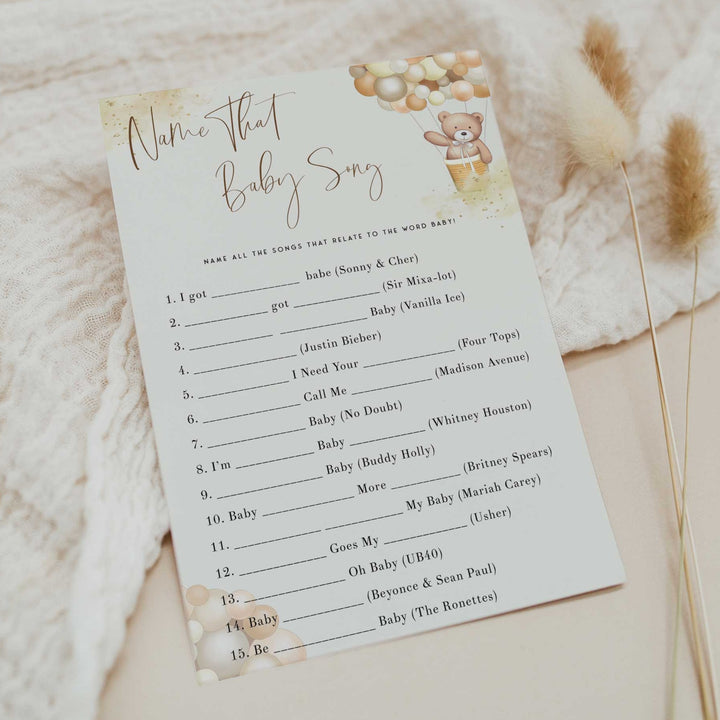 Name That
Baby Song
NAME ALL THE SONGS THAT RELATE TO THE WORD BABY!
1. I got ____________ babe (Sonny & Cher)
2. ____________ got ____________ (Sir Mixa-lot)
3. ____________ ____________ Baby (Vanilla Ice)
4. ________________ (Justin Bieber)
5. ________________ I Need Your ____________ (Four Tops)
6. ______________ Call Me ____________ (Madison Avenue)
7. ________________ Baby (No Doubt)
8. I'm ____________ Baby ____________ (Whitney Houston)
9. ________________ Baby (Buddy Holly)
10. Baby ______________ More ____________ (Britney Spears)
11. ____________ ____________ My Baby (Mariah Carey)
12. ______________ Goes My ____________ (Usher)
13. ________________ Oh Baby (UB40)
14. Baby ____________ (Beyonce & Sean Paul)
15. Be ______________ Baby (The Ronettes)